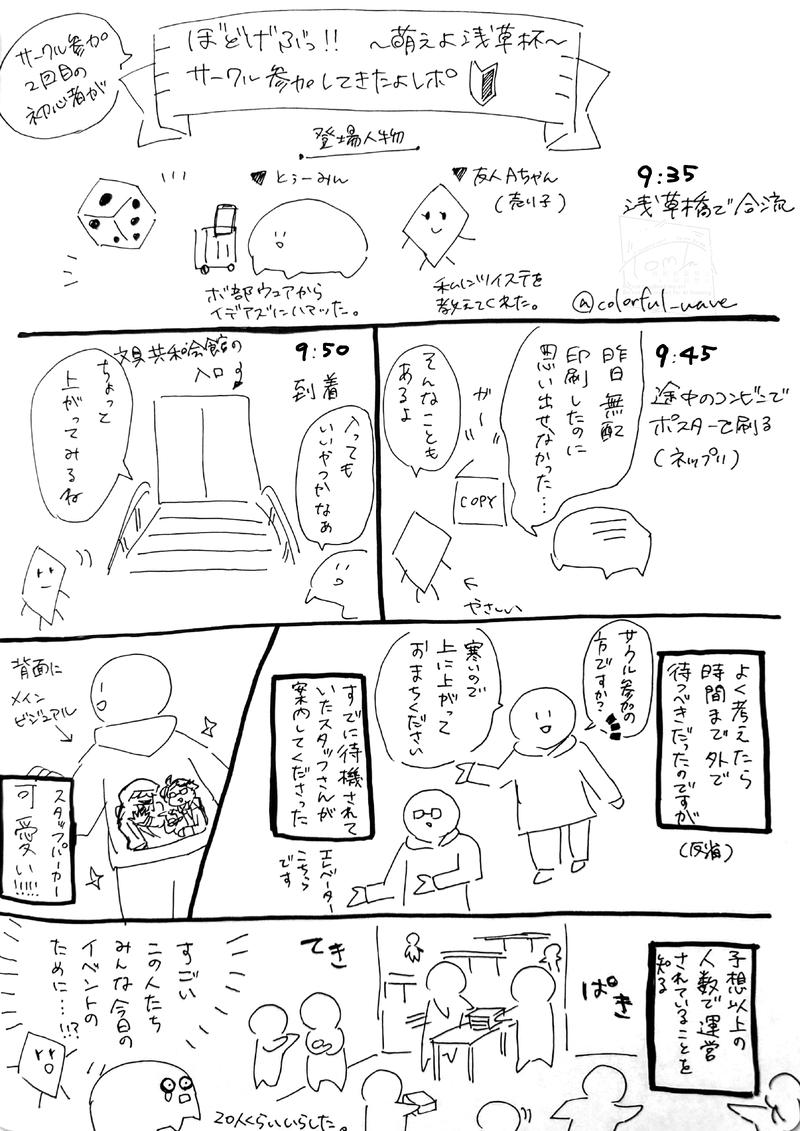 サークル参加
2回目の
初心者が
ぼどげぶっ!! ~萌えよ浅草杯~
サークル参加してきたよレポ
登場人物
とぅーみん
ボ部ウェアから
イデアズにハマッた。
友人Aちゃん
(売り子)
私にツイステを
教えてくれた。
9:35
浅草橋で合流
@colorful_wave
9:45
途中のコンビニで
ポスターを刷る
(ネップリ)
昨日無配
印刷したのに
思い出せなかった…
ガー
COPY
そんなことも
あるよ
やさしい
9:50
到着
文具共和会館の
入口
入っても
いいかなぁ
ちょっと
上がってみるね
よく考えたら
時間まで外で
待つべきだったのですが
(反省)
サークル参加の
方ですか?
寒いので
上に上がって
おまちください
すでに待機されて
いたスタッフさんが
案内してくださった
エレベーター
こちら
です
背面に
メイン
ビジュアル
スタッフパーカー
可愛い!!!!!
予想以上の
人数で運営
されていることを
知る
てき
ぱき
すごい
この人たち
みんな今日の
イベントの
ために…!!?
20人くらいいらした。